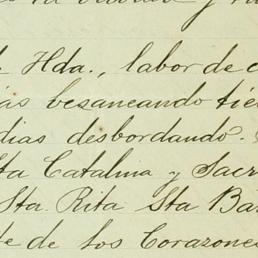 Hda., labor de
besaneando
dias desbordando.
Sta Catalina y Sacr
Sta. Rita Sta Ba
de los Corazones